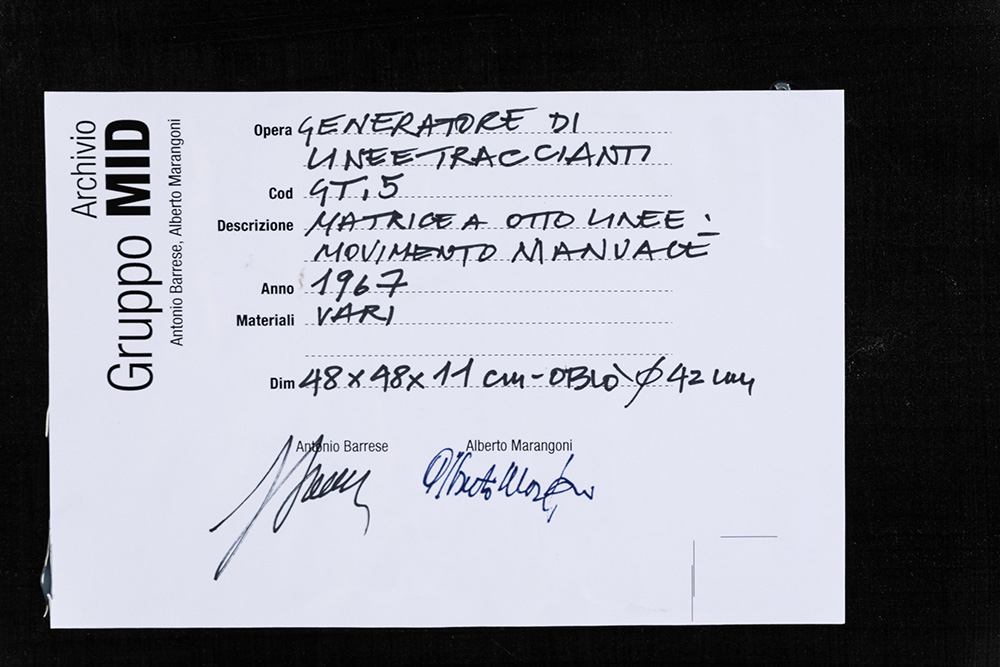 Archivio
Gruppo MID
Antonio Barrese, Alberto Marangoni
Opera GENERATORE DI
LINEE TRACCIANTI
Cod GT.5
Descrizione MATRICE A OTTO LINEE :
MOVIMENTO MANUALE
Anno 1967
Materiali VARI
Dim 48x48x11 cm - OBLÒ Ø 42 cm
Antonio Barrese Alberto Marangoni
Alberto Marangoni